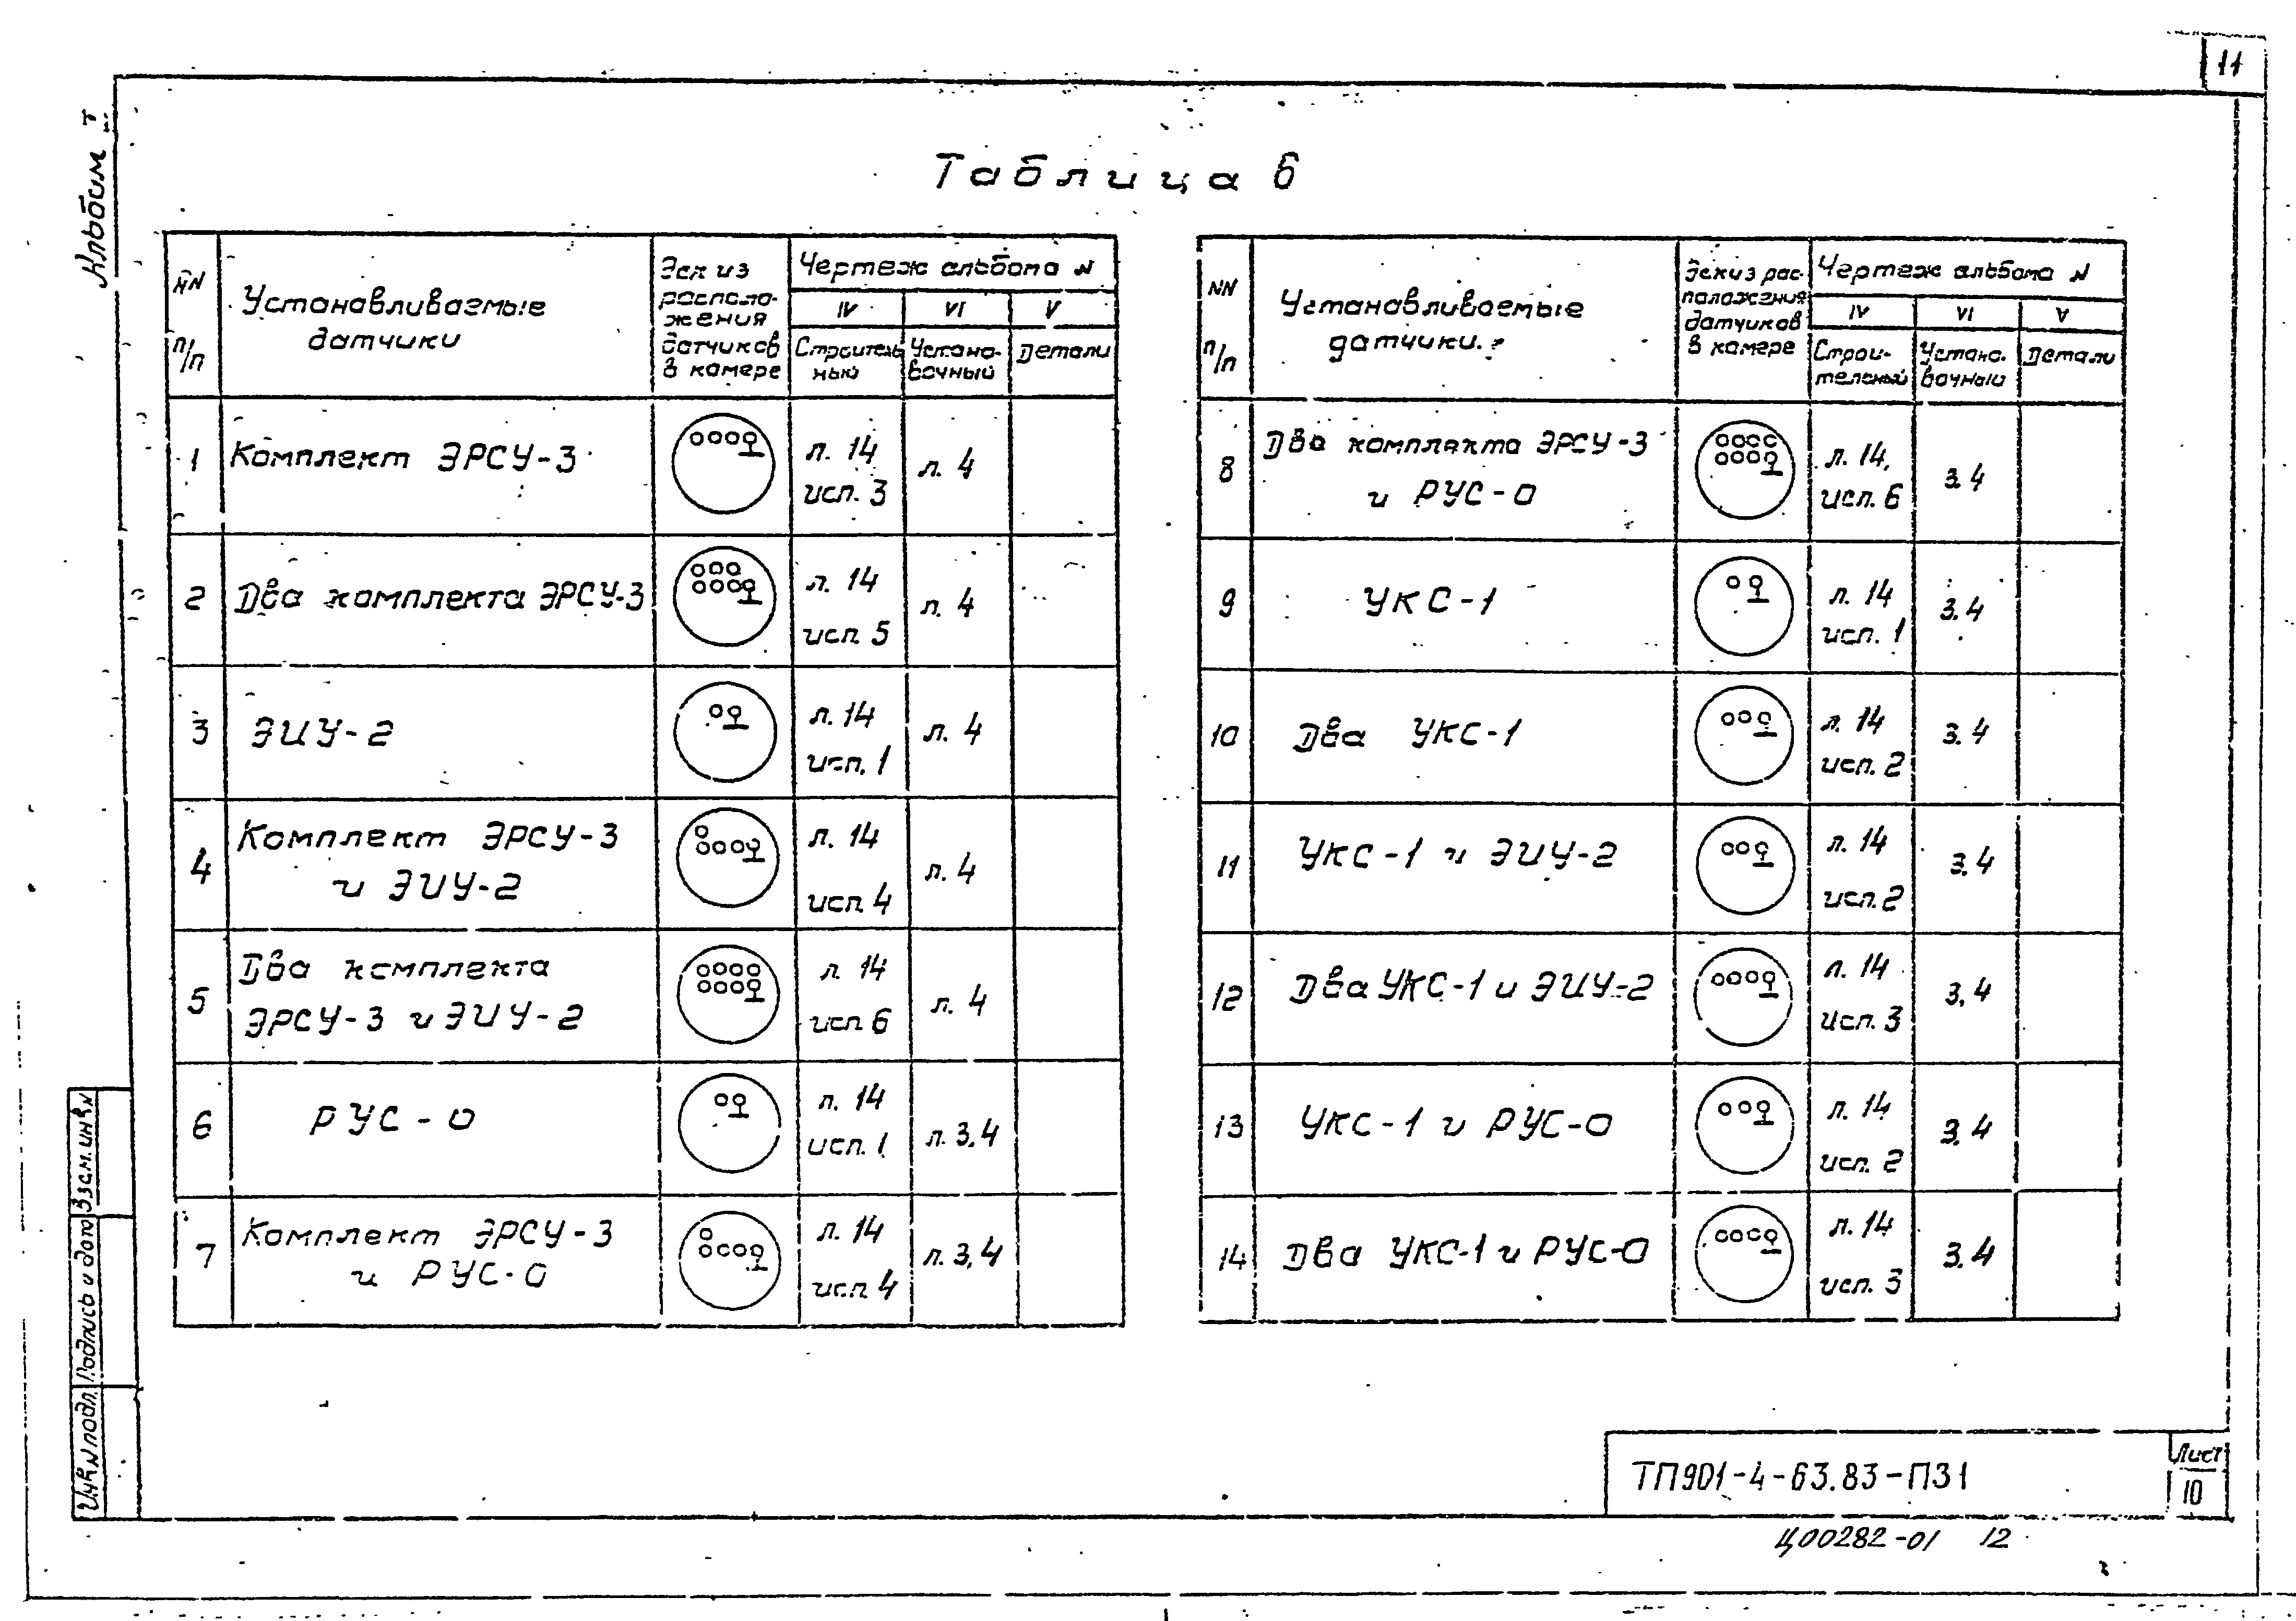 11
Альбом I
Таблица 6
NN п/п
Устанавливаемые датчики
Эскиз расположения датчиков в камере
Чертеж альбома N
IV
VI
V
Строительный
Установочный
Детали
1
Комплект ЭРСУ-3
л. 14 исп. 3
л. 4
2
Два комплекта ЭРСУ-3
л. 14 исп 5
л. 4
3
ЭИУ-2
л. 14 исп. 1
л. 4
4
Комплект ЭРСУ-3 и ЭИУ-2
л. 14 исп 4
л. 4
5
Два комплекта ЭРСУ-3 и ЭИУ-2
л 14 исп 6
л. 4
6
РУС-0
л. 14 исп. 1
л. 3,4
7
Комплект ЭРСУ-3 и РУС-0
л. 14 исп 4
л. 3,4
NN п/п
Устанавливаемые датчики
Эскиз расположения датчиков в камере
Чертеж альбома N
IV
VI
V
Строительный
Установочный
Детали
8
Два комплекта ЭРСУ-3 и РУС-0
л. 14, исп. 6
3.4
9
УКС-1
л. 14 исп. 1
3.4
10
Два УКС-1
л. 14 исп. 2
3.4
11
УКС-1 и ЭИУ-2
л. 14 исп. 2
3.4
12
Два УКС-1 и ЭИУ-2
л. 14 исп. 3
3,4
13
УКС-1 и РУС-0
л. 14 исп. 2
3.4
14
Два УКС-1 и РУС-0
л. 14 исп. 3
3.4
Взам. инв. N
Подпись и дата
Инв. N подл.
ТП901-4-63.83-ПЗ1
Лист
10
Ц00282-01 12